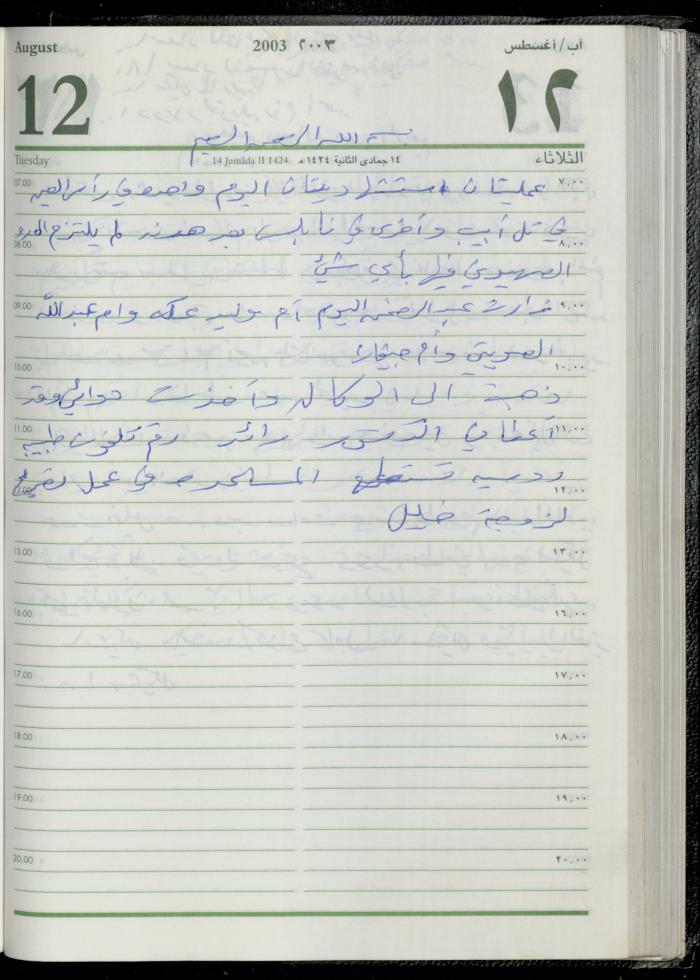 August 2003 ٢٠٠٣ آب/أغسطس
12 ١٢
بسم الله الرحمن الرحيم
Tuesday 14 Jumāda II 1424 ١٤ جمادى الثانية ١٤٢٤ هـ الثلاثاء
07.00 عمليتان استشهاديتان اليوم واحده في رأس العين ٧,٠٠
في تل أبيب وأخرى في نابلس بعد هدنه لم يلتزم العدو
08.00 ٨,٠٠
الصهيوني فيها بأي شيئ
09.00 زارت عبد الرحمن اليوم أم وليد عكه وام عبدالله ٩,٠٠
الصويتي وأم
10.00 ١٠,٠٠
ذهبة الى الوكاله وأخذت دوائي وقد
11.00 أعطاني الدكتور رائد رقم تلفون طبيبه ١١,٠٠
روسيه تستطيع المساعده في عمل
12.00 ١٢,٠٠
لزوجة خليل
13.00 ١٣,٠٠
16.00 ١٦,٠٠
17.00 ١٧,٠٠
18.00 ١٨,٠٠
19.00 ١٩,٠٠
20.00 ٢٠,٠٠